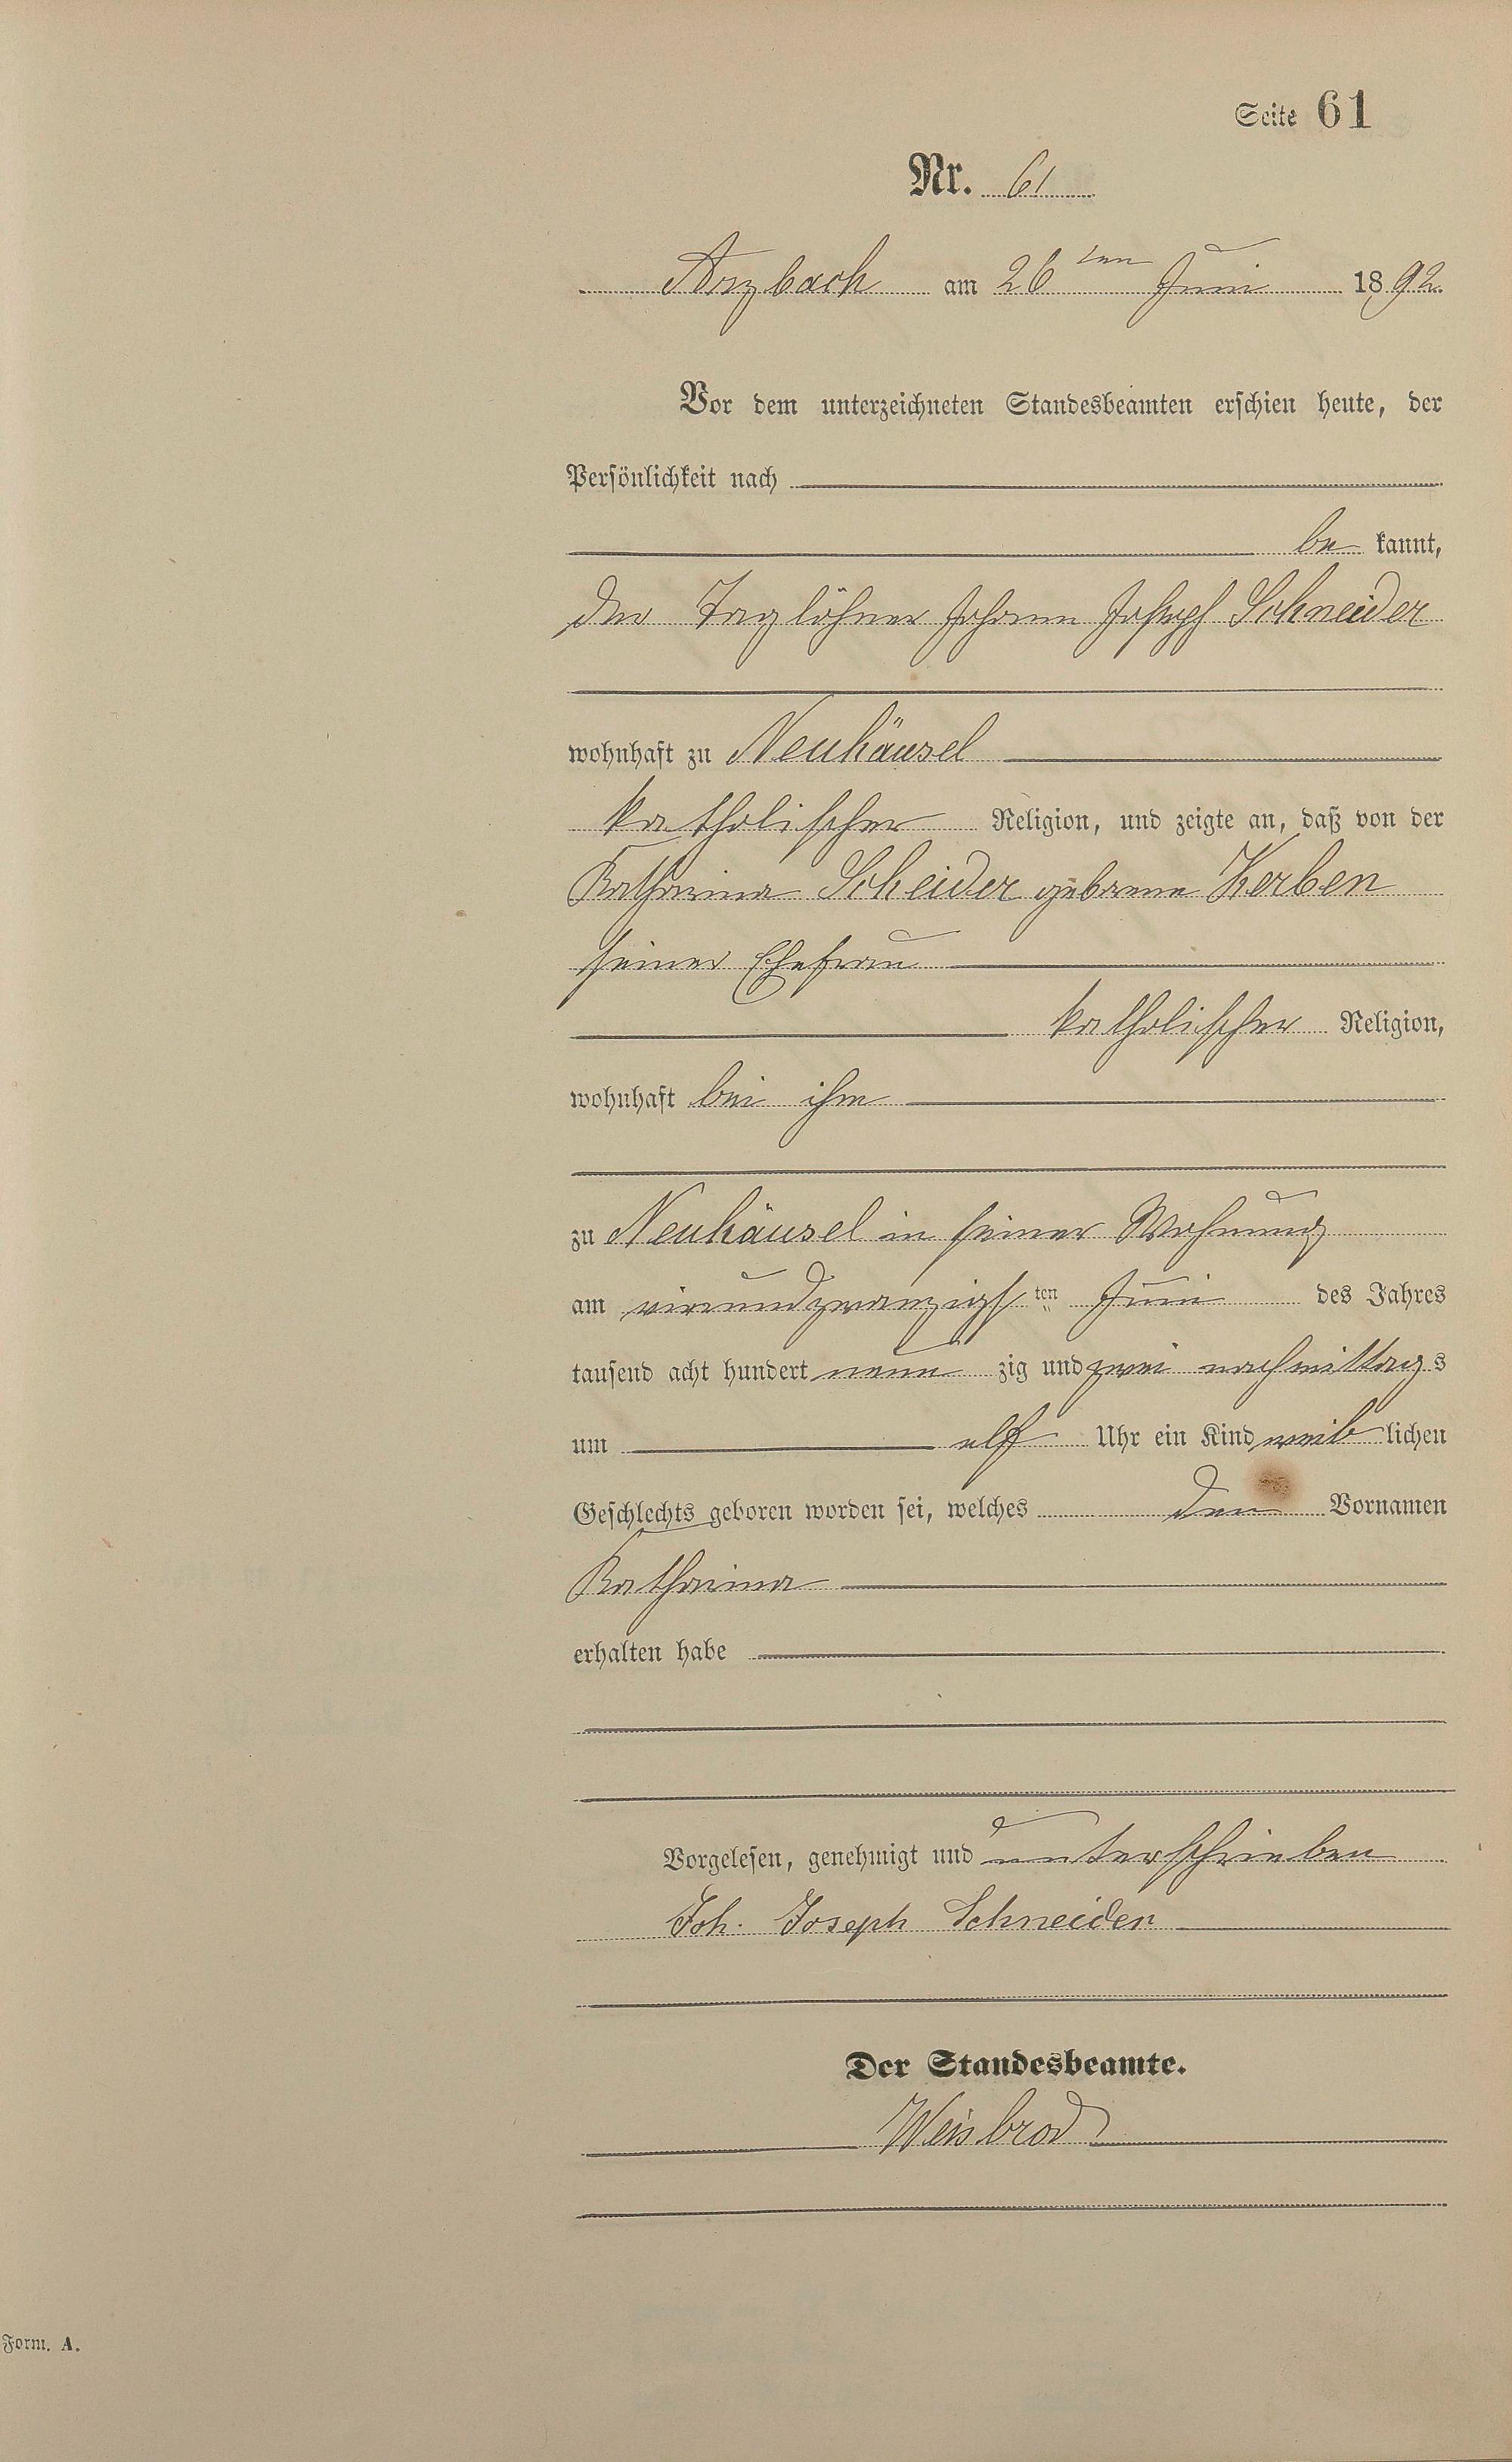 Seite 61
Nr. 61
Arzbach am 26ten Juni 1892.
Vor dem unterzeichneten Standesbeamten erschien heute, der
Persönlichkeit nach
be kannt,
der Taglöhner Johann Joseph Schneider
wohnhaft zu Neuhäusel
katholischer Religion, und zeigte an, daß von der
Katharina Scheider geborene Kerben
seiner Ehefrau
katholischer Religion,
wohnhaft bei ihm
zu Neuhäusel in seiner Wohnung
am vierundzwanzigsten Juni des Jahres
tausend acht hundert neun zig und zwei nachmittags
um elf Uhr ein Kind weib lichen
Geschlechts geboren worden sei, welches den Vornamen
Katharina
erhalten habe
Vorgelesen, genehmigt und unterschrieben
Joh. Joseph Schneider
Der Standesbeamte.
Weisbrod
Form. A.